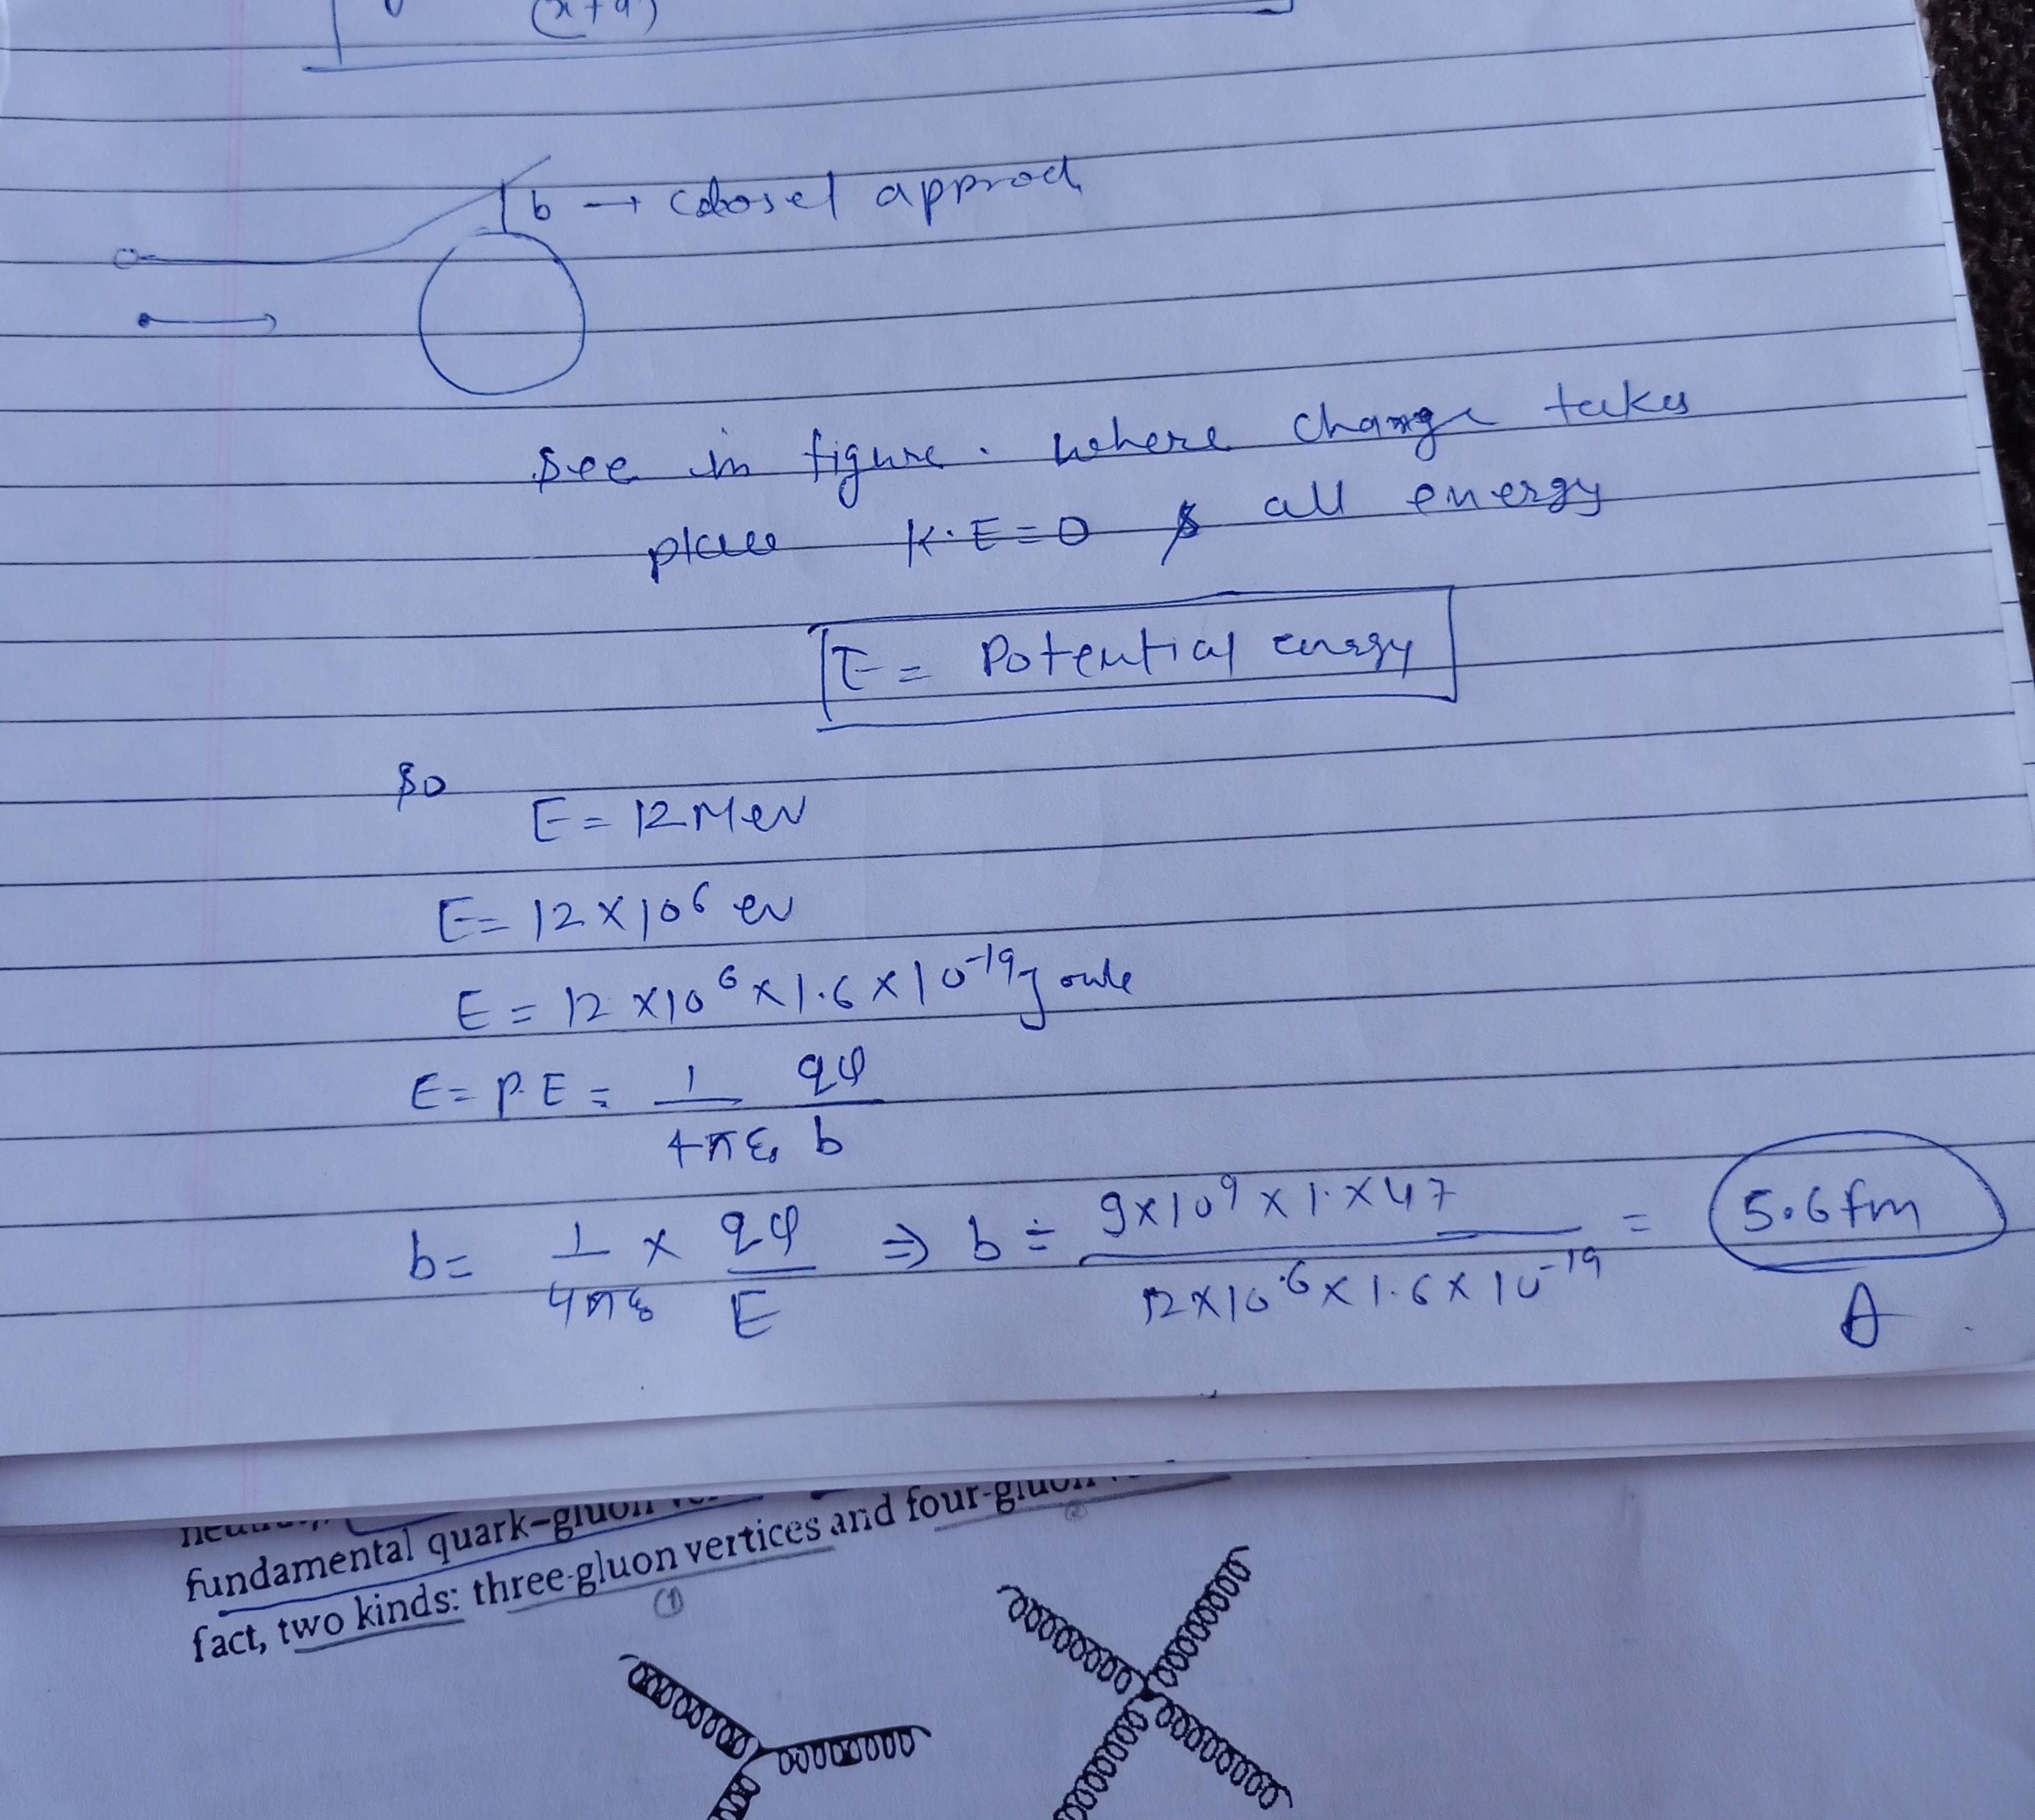 (x+a)
b → closest approch
See in figure. where change takes
place K.E = 0 & all energy
E = Potential energy
So
E = 12 Mev
E = 12 × 10⁶ ev
E = 12 × 10⁶ × 1.6 × 10⁻¹⁹ Joule
E = P.E = 1/4πε₀ qφ/b
b = 1/4πε × qφ/E ⇒ b = 9×10⁹ × 1. × 47 / 12×10⁶ × 1.6 × 10⁻¹⁹ = 5.6 fm
A
fundamental quark–gluon
fact, two kinds: three-gluon vertices and four-gluon
(1)
(2)